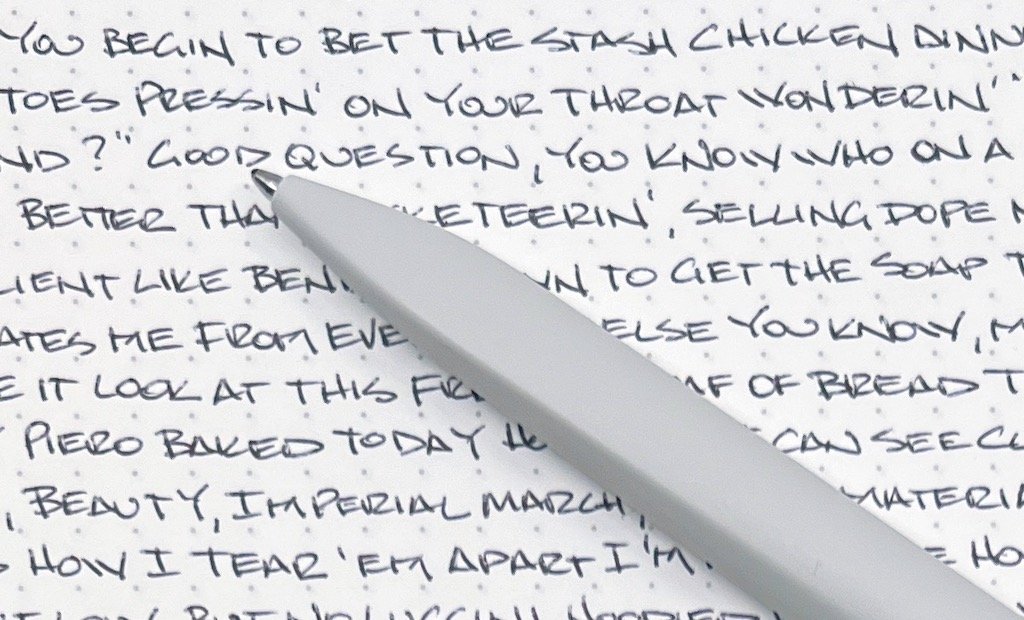 YOU BEGIN TO BET THE STASH CHICKEN DINN
TOES PRESSIN' ON YOUR THROAT WONDERIN' "
ND?" GOOD QUESTION, YOU KNOW WHO ON A
BETTER THA ETEERIN', SELLING DOPE
LIENT LIKE BEN N TO GET THE SOAP T
ATES ME FROM EVE ELSE YOU KNOW, M
E IT LOOK AT THIS F AF OF BREAD T
PIERO BAKED TODAY CAN SEE CL
, BEAUTY, IMPERIAL MARCH, MATERIA
HOW I TEAR 'EM APART I'M HO